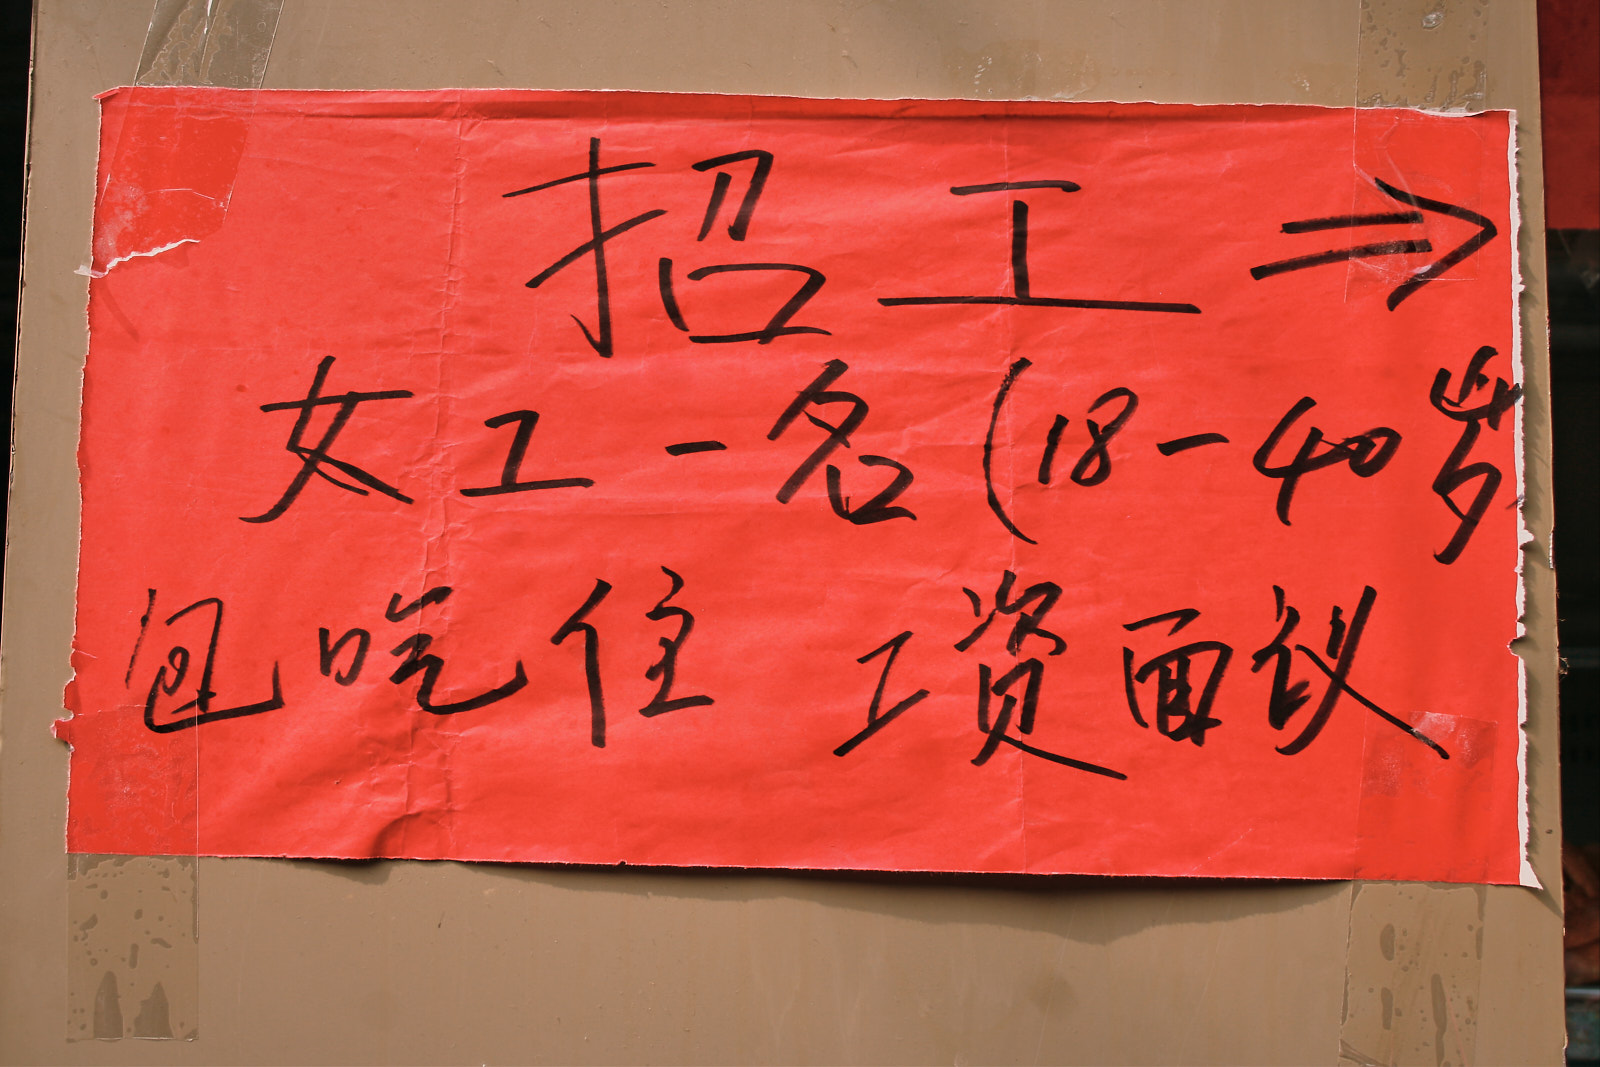 招工⇒
女工一名(18-40岁
包吃住 工资面议